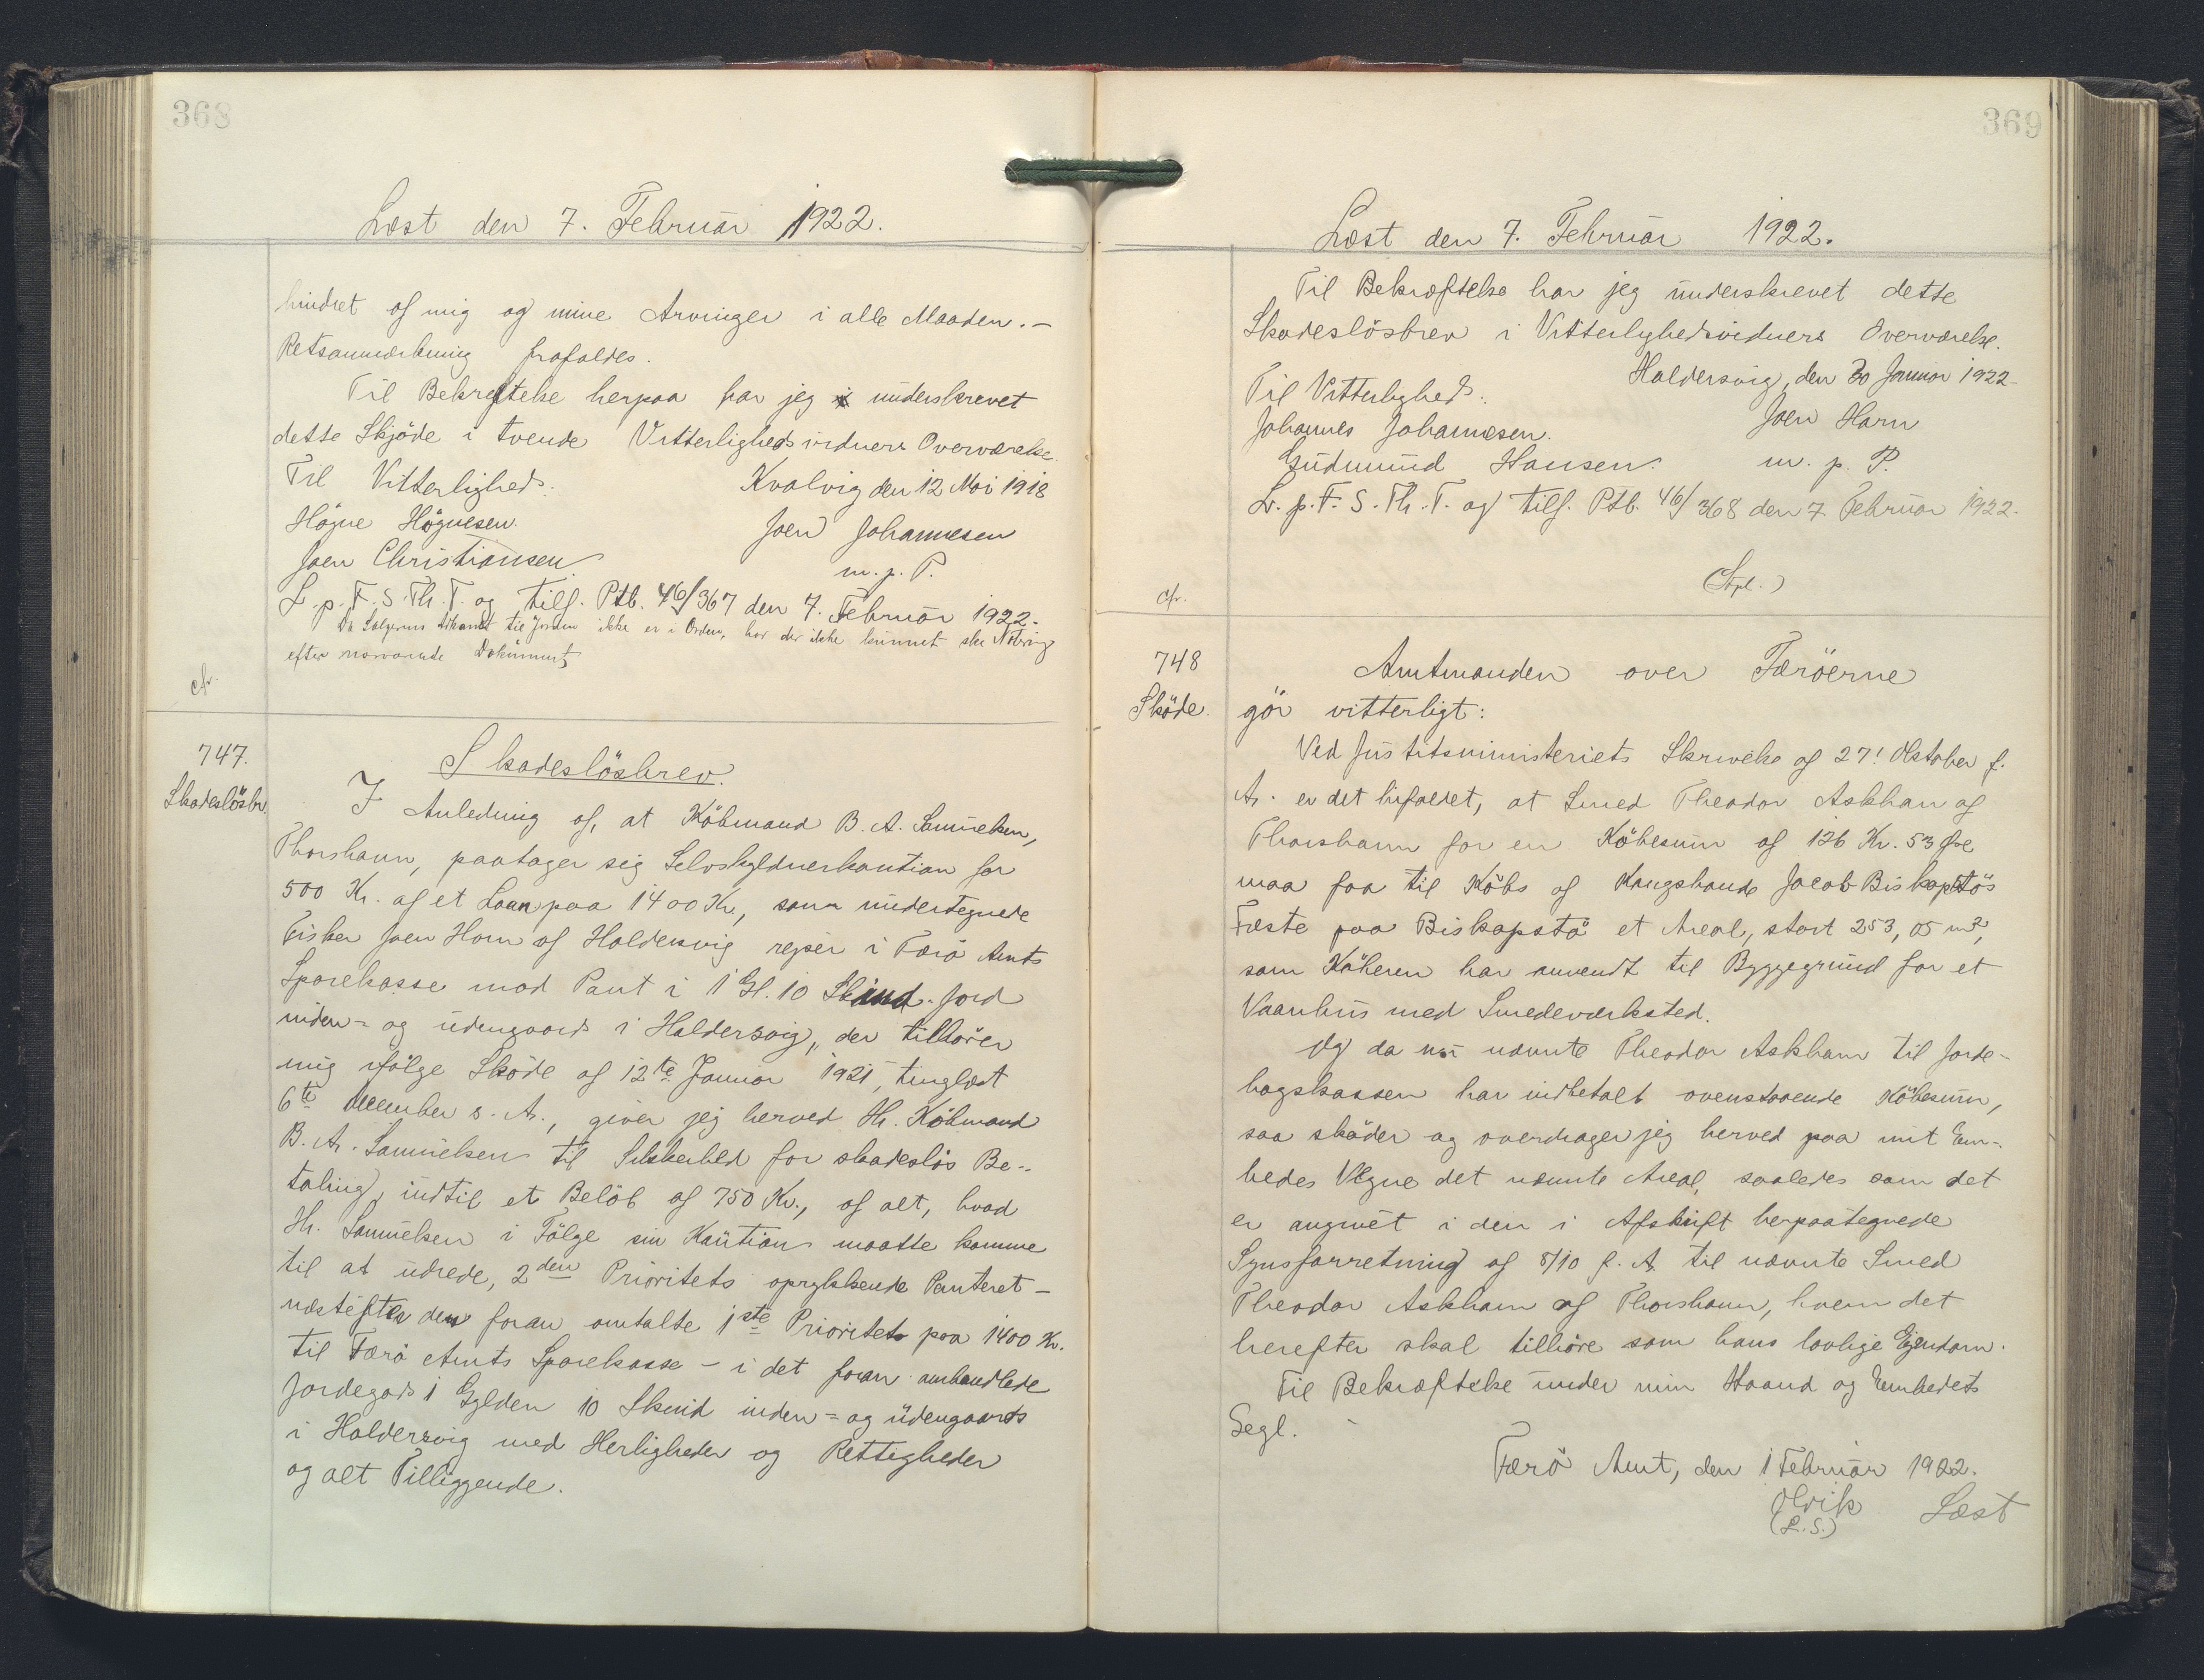 368
Læst den 7. Februar 1922.
hindret af mig og mine Arvinger i alle Maader.-
Retsanmærkning frafaldes.
Til Bekræftelse herpaa har jeg underskrevet
dette Skjöde i tvende Vitterlighedsvidners Overværelse.
Til Vitterlighed:
Kvalvig den 12 Mai 1918
Högne Högnesen.
Joen Johannesen
Joen Christiansen
m. p. P.
L. p. F. S. Th. T. og tilf. Ptb. 46/367 den 7. Februar 1922.
Da Sælgerens Adkomst til Jorden ikke er i Orden, har der ikke kunnet ske Notering
efter nærværende Dokument
cfr.
747.
Skadeslösbr.
Skadeslösbrev.
I Anledning af, at Köbmand B. A. Samuelsen,
Thorshavn, paatager sig Selvskyldnerkaution for
500 Kr. af et Laan paa 1400 Kr., som undertegnede
Fisker Joen Horn af Haldersvig rejser i Færö Amts
Sparekasse mod Pant i 1 Gl. 10 Skind Jord
inden= og udengaards i Haldersvig, der tilhører
mig ifölge Sköde af 12te Januar 1921, tinglæst
6te December s. A., giver jeg herved Hr. Köbmand
B. A. Samuelsen til Sikkerhed for skadeslös Be-
taling, indtil et Belöb af 750 Kr., af alt, hvad
Hr. Samuelsen i Fölge sin Kaution maatte komme
til at udrede, 2den Prioritets oprykkende Panteret -
næstefter den foran omtalte 1ste Prioritets paa 1400 Kr.
til Færö Amts Sparekasse - i det foran omhandlede
Jordegods 1 Gylden 10 Skind inden= og udengaards
i Haldersvig med Herligheder og Rettigheder
og alt Tilliggende.
369
Læst den 7. Februar 1922.
Til Bekræftelse har jeg underskrevet dette
Skadeslösbrev i Vitterlighedsvidners Overværelse.
Haldersvig, den 30 Januar 1922
Til Vitterlighed:
Joen Horn
Johannes Johannesen.
Gudmund Hansen.
m. p. P.
L. p. F. S. Th. T. og tilf. Ptb. 46/368 den 7. Februar 1922.
(Stpl.)
cfr.
748
Sköde.
Amtmanden over Færöerne
gör vitterligt:
Ved Justitsministeriets Skrivelse af 27! Oktober f.
A. er det bifaldet, at Smed Theodor Askham af
Thorshavn for en Köbesum af 126 Kr. 53 Øre
maa faa til Köbs af Kongsbonde Jacob Biskopstös
Fæste paa Biskopstö et Areal, stort 253,05 m²,
som Köberen har anvendt til Byggegrund for et
Vaanhus med Smedeværksted.
Og da nu nævnte Theodor Askham til Jorde-
bogskassen har indbetalt ovenstaaende Köbesum,
saa sköder og overdrager jeg herved paa mit Em-
bedes Vegne det nævnte Areal, saaledes som det
er angivet i den i Afskrift herpaategnede
Synsforretning af 8/10 f. A. til nævnte Smed
Theodor Askham af Thorshavn, hvem det
herefter skal tilhöre som hans lovlige Ejendom.
Til Bekræftelse under min Haand og Embedets
Segl.
Færö Amt, den 1 Februar 1922.
Olrik
(L.S.)
Læst